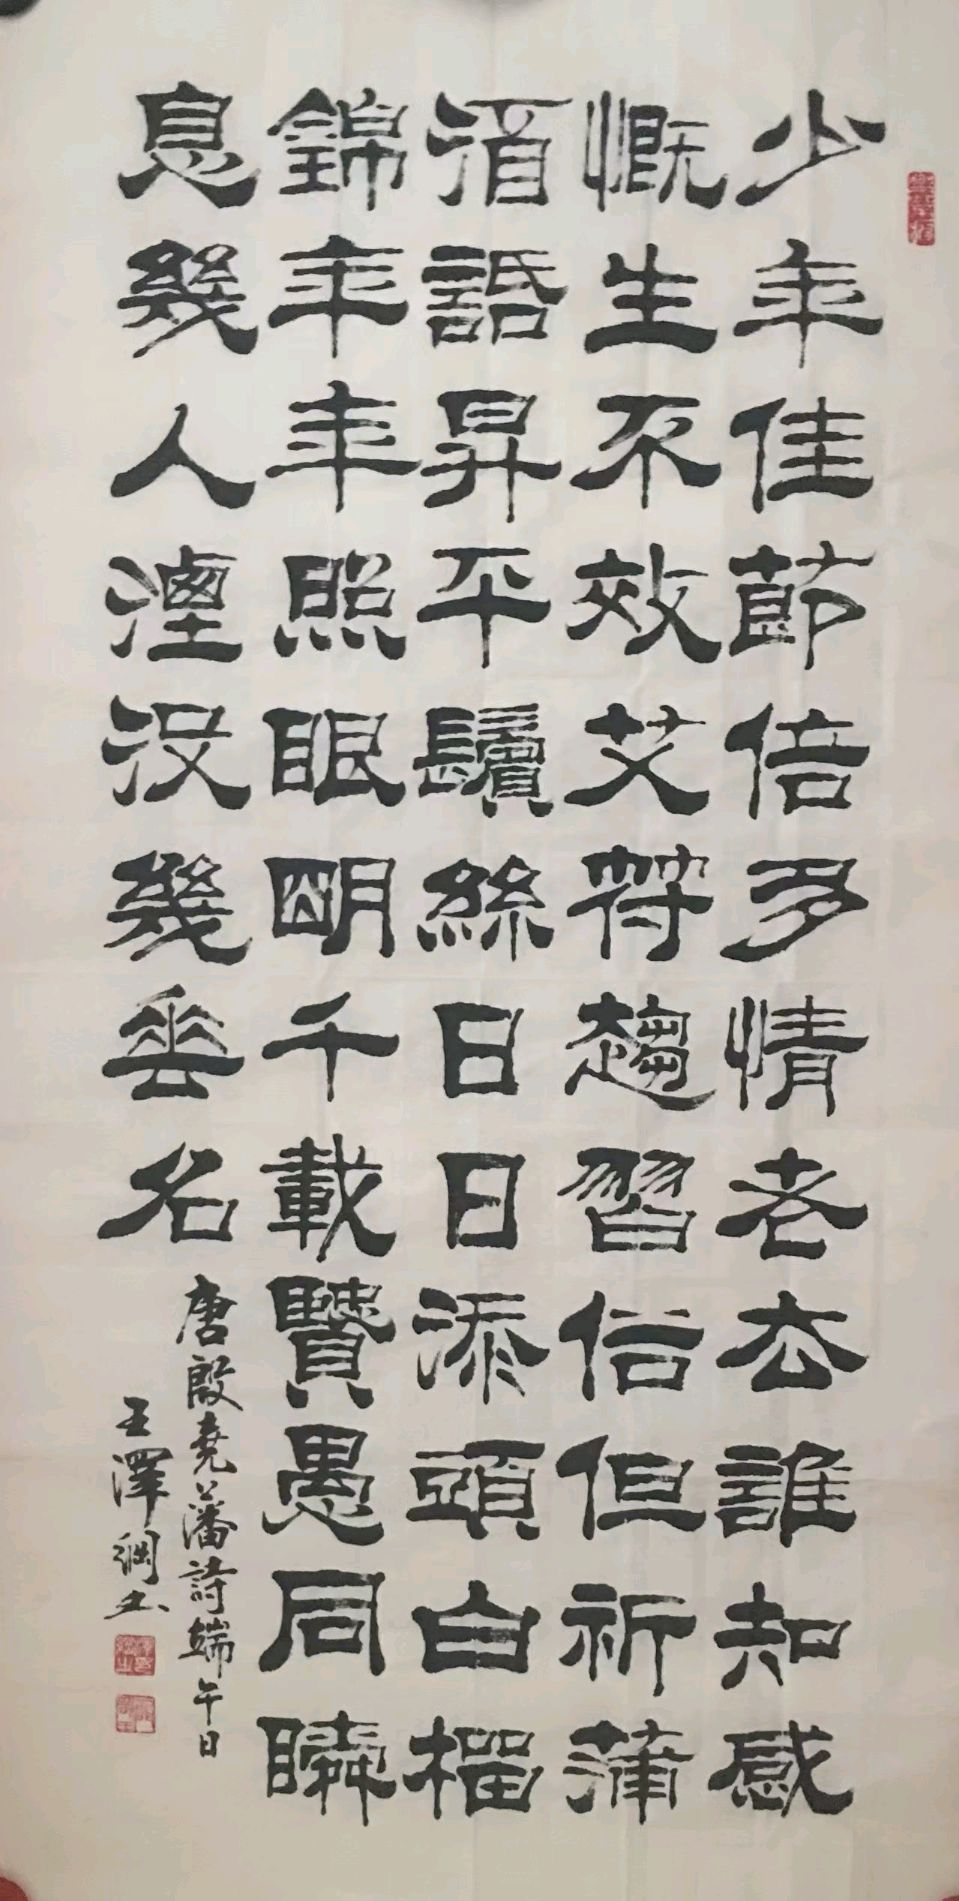 少年佳節倍多情老去誰知感
慨生不效艾符趨習俗但祈蒲
酒話昇平鬢絲日日添頭白榴
錦年年照眼明千載賢愚同瞬
息幾人湮沒幾垂名
唐殷堯藩詩端午日
王澤綱书